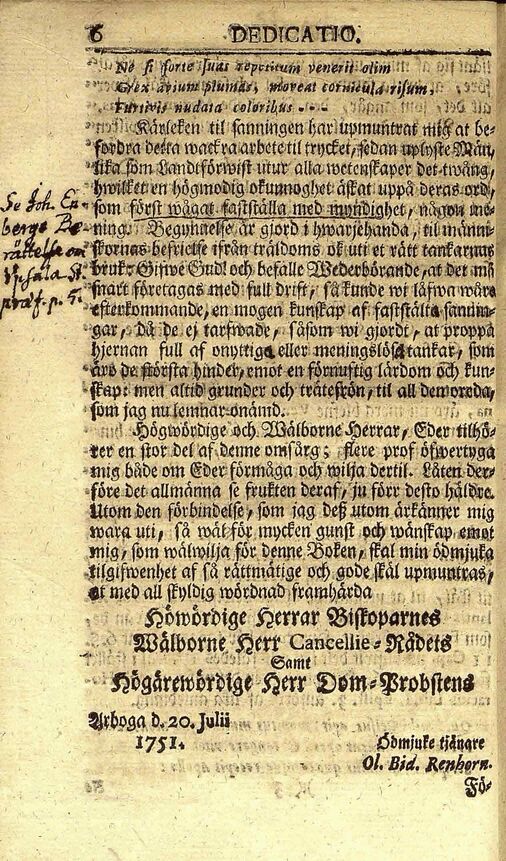 6 DEDICATIO.
Ne si forte suas repetitum venerit olim
Grex avium plumas, moveat cornicula risum,
Furtivis nudata coloribus - - -
Kärleken til sanningen har upmuntrat mig at be-
fordra detta wackra arbete til trycket, sedan uplyste Män,
lika som Landtförwist utur alla wetenskaper det twång,
hwilket en högmodig okunnoghet äskat uppå deras ord,
som först wågat fastställa med myndighet, någon me-
ning. Begynnelse är gjord i hwarjehanda, til männi-
skornas befrielse ifrån träldoms ok uti et rätt tankarnas
bruk: Gifwe Gud! och befälle Wederbörande, at det må
snart företagas med full drift, så kunde wi låfwa wåra
efterkommande, en mogen kunskap af fastställta sannin-
gar, då de ej tarfwade, såsom wi gjordt, at proppa
hjernan full af onyttiga eller meningslösa tankar, som
äro de största hinder, emot en förnuftig lärdom och kun-
skap: men altid grunder och trätefrön, til all den oreda,
som jag nu lemnar onämd.
Högwördige och Wälborne Herrar, Eder tilhö-
rer en stor del af denne omsårg; flere prof öfwertyga
mig både om Eder förmåga och wilja dertil. Låten der-
före det allmänna se frukten deraf, ju förr desto häldre.
Utom den förbindelse, som jag deß utom ärkänner mig
wara uti, så wäl för mycken gunst och wänskap emot
mig, som wälwilja för denne Boken, skal min ödmjuka
tilgifwenhet af så rättmätige och gode skäl upmuntras,
at med all skyldig wördnad framhärda
Höwördige Herrar Biskoparnes
Wälborne Herr Cancellie-Rådets
Samt
Högärewördige Herr Dom-Probstens
Arboga d. 20. Julii
1751.
Ödmjuke tjänare
Ol. Bid. Renhorn.
Fö-
Se Joh. En-
bergs Be-
rättelse om
Upsala
præf. p. 5.